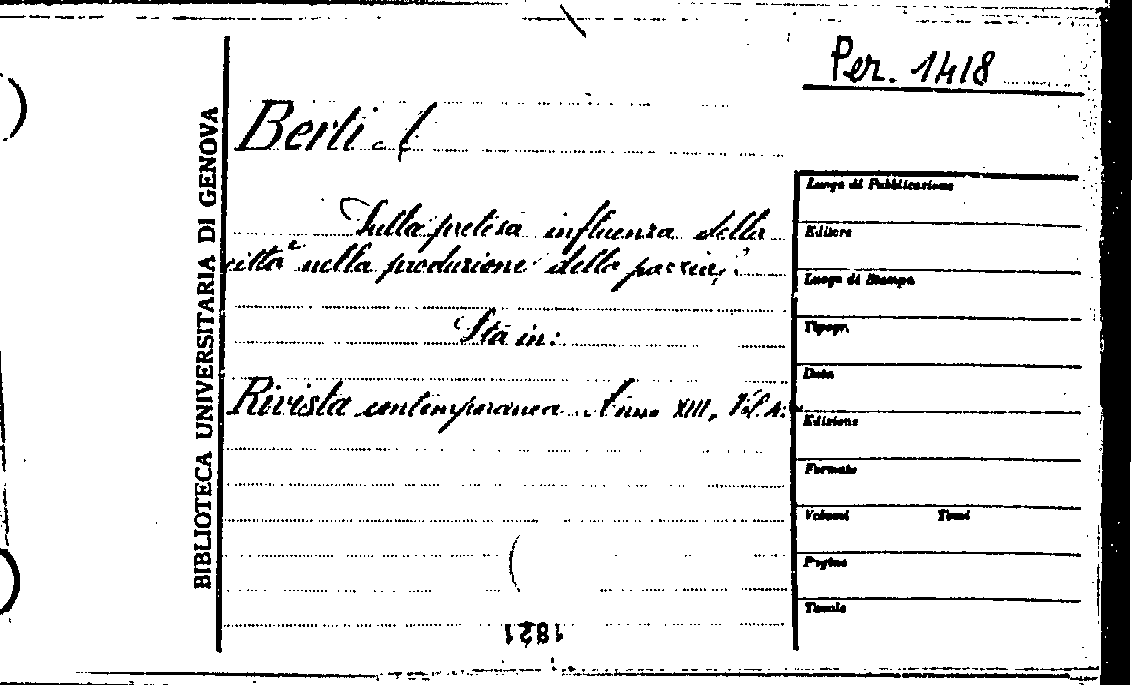 Per. 1418
BIBLIOTECA UNIVERSITARIA DI GENOVA
Berti A
Sulla pretesa influenza della
città nella produzione della pazzia,
Sta in:
Rivista contemporanea Anno XIII, Vol.
Luogo di Pubblicazione
Editore
Luogo di Stampa
Tipogr.
Data
Edizione
Formato
Volumi Tomi
Pagine
Tavole
1821